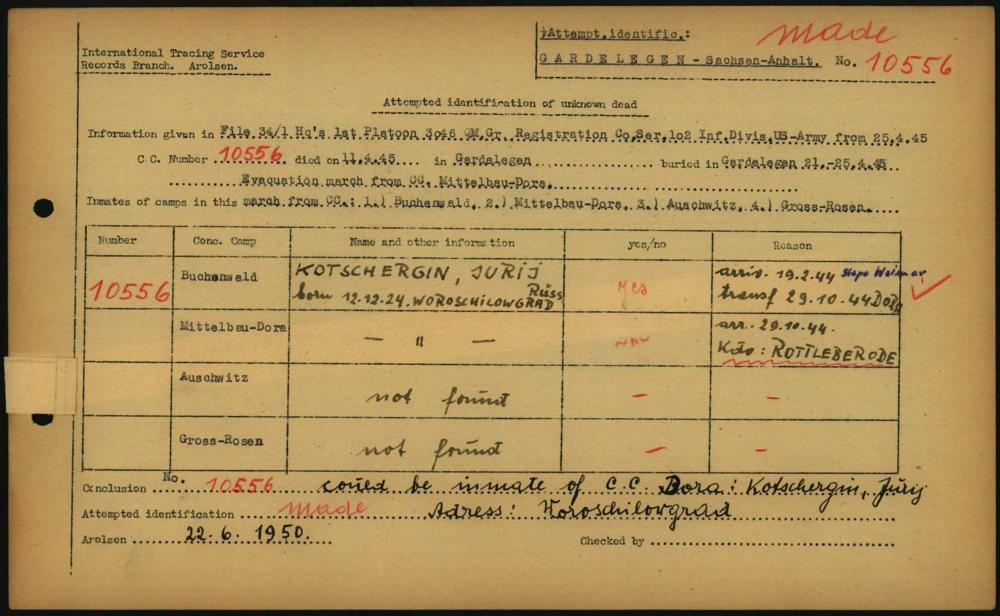 International Tracing Service
Records Branch. Arolsen.
Attempt.identific.: made
GARDELEGEN - Sachsen-Anhalt. No. 10556
Attempted identification of unknown dead
Information given in File 34/1 Hq's 1st Platoon 3046 QM.Gr. Registration Co.Ser.1o2 Inf.Divis.US-Army from 25.4.45
C.C. Number 10556 died on 11.4.45 in Gardelegen buried in Gardelegen 21.-25.4.45
Evacuation march from CC. Mittelbau-Dora.
Inmates of camps in this march from CC.: 1.) Buchenwald, 2.) Mittelbau-Dora, 3.) Auschwitz, 4.) Gross-Rosen.
Number Conc. Camp Name and other information yes/no Reason
10556 Buchenwald KOTSCHERGIN, JURIJ Russ yes arriv. 19.2.44 Stapo Weimar
born 12.12.24. WOROSCHILOWGRAD transf 29.10.44 DORA
Mittelbau-Dora — " — arr. 29.10.44.
Kdo: ROTTLEBERODE
Auschwitz not found — —
Gross-Rosen not found — —
Conclusion No. 10556 could be inmate of C.C. Dora: Kotschergin, Jurij
Attempted identification made Adress: Woroschilowgrad
Arolsen 22.6.1950. Checked by